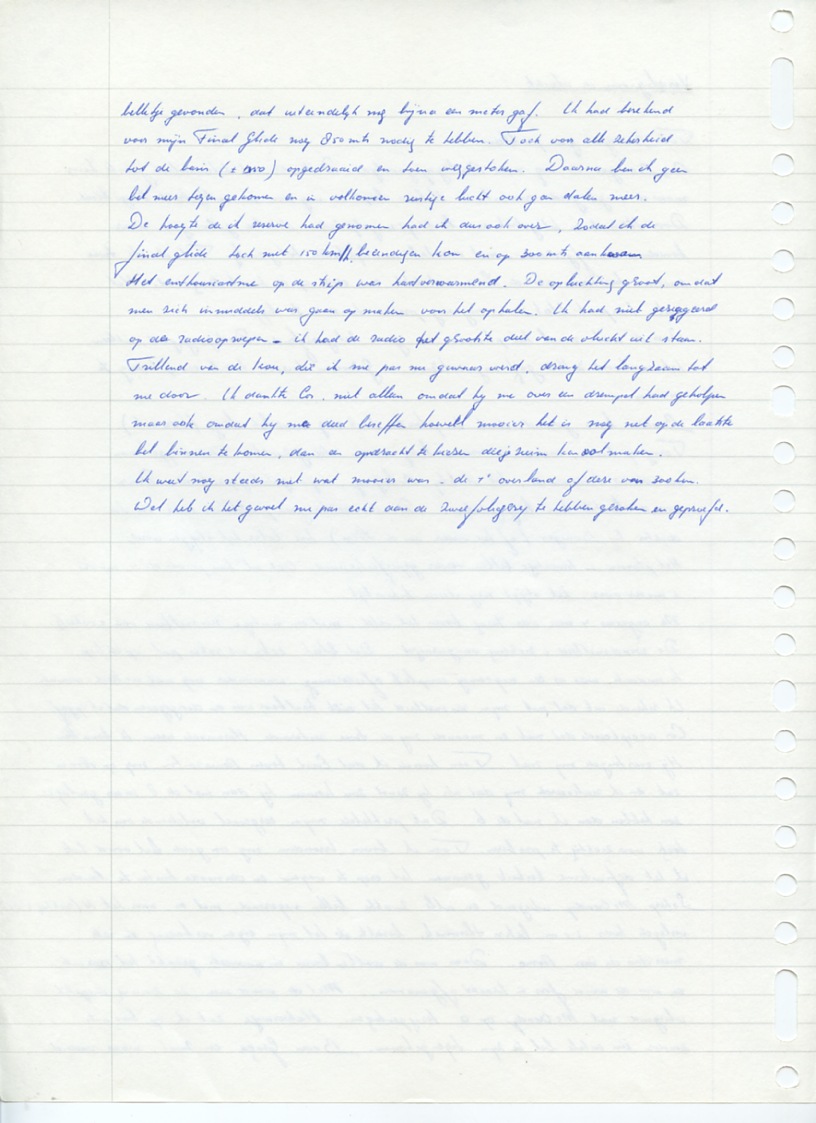 belletje gevonden, dat uiteindelijk nog bijna een meter gaf. Ik had berekend
voor mijn Final Glide nog 850 mts nodig te hebben. Toch voor alle zekerheid
tot de basis (± ) opgedraaid en toen weggestoken. Daarna ben ik geen
bel meer tegen gekomen en in volkomen rustige lucht ook gan dalen meer.
De hoogte die ik reserve had genomen had ik dus ook over, zodat ik de
final glide toch met 150 km/h beeindigen kon en op 300 mts aankwam
Het enthousiasme op de strip was hartverwarmend. De opluchting groot, omdat
men zich inmiddels was gaan op maken voor het ophalen. Ik had niet gereageerd
op de radiooproepen - ik had de radio het grootste deel van de vlucht uit staan.
Trillend van de kou, die ik me pas nu gewaar werd, drong het langzaam tot
me door. Ik dankte Cor, niet alleen omdat hij me over een drempel had geholpen
maar ook omdat hij me deed beseffen hoeveel mooier het is nog net op de laatste
bel binnen te komen, dan een opdracht te kiezen die je ruim kan volmaken.
Ik weet nog steeds niet wat mooier was - de 1e overland of deze van 300 km.
Wel heb ik het gevoel nu pas echt aan de zweefvliegerij te hebben geroken en geproefd.